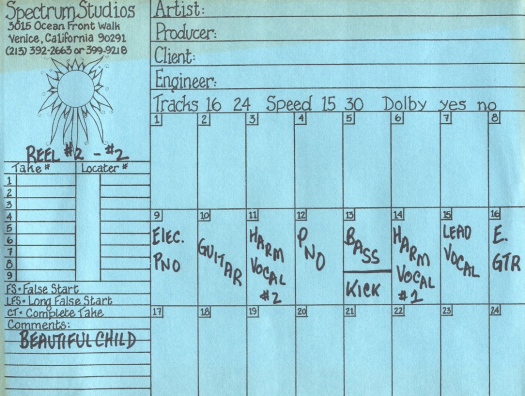 Spectrum Studios
3015 Ocean Front Walk
Venice, California 90291
(213) 392-2663 or 399-9218
REEL #2 - #2
Take # Locater #
1
2
3
4
5
6
7
8
9
FS • False Start
LFS • Long False Start
CT • Complete Take
Comments:
BEAUTIFUL CHILD
Artist:
Producer:
Client:
Engineer:
Tracks 16 24 Speed 15 30 Dolby yes no
1 2 3 4 5 6 7 8
9 10 11 12 13 14 15 16
ELEC. PNO
GUITAR
HARM VOCAL #2
PNO
BASS
KICK
HARM VOCAL #1
LEAD VOCAL
E. GTR
17 18 19 20 21 22 23 24